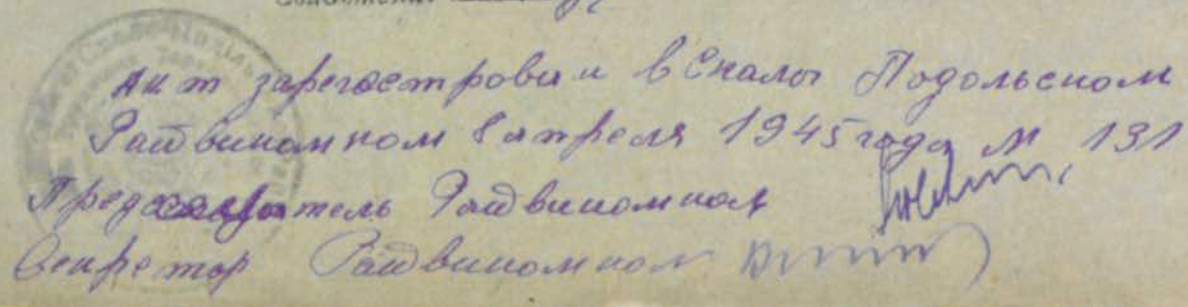 Акт зарегостровон в Скалот Подольском
Райвиконком 8 апреля 1945 года № 131
Председатель Райвиконкома
Секретор Райвиконком